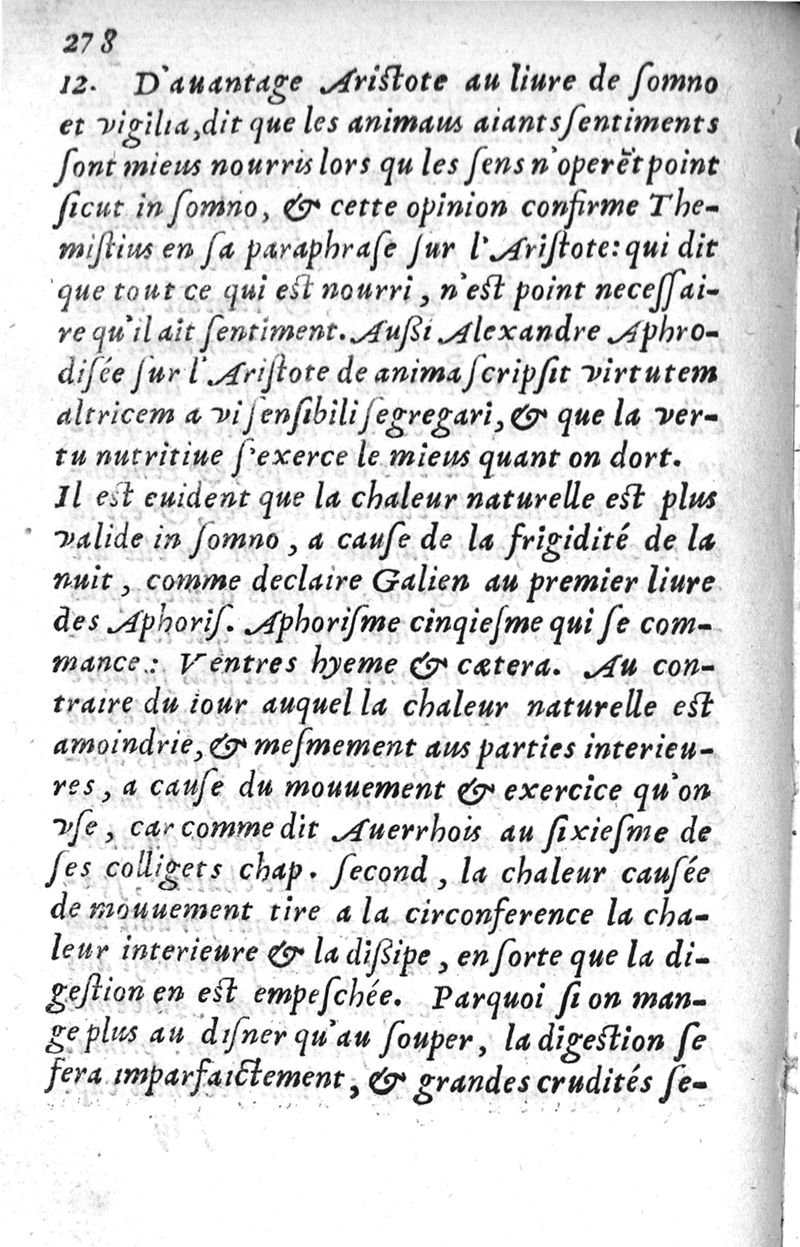 278
12. D'auantage Ariſtote au liure de ſomno
et vigilia, dit que les animaus aiants ſentiments
ſont mieus nourris lors qu les ſens n'operẽt point
ſicut in ſomno, & cette opinion confirme The-
miſtius en ſa paraphraſe ſur l'Ariſtote: qui dit
que tout ce qui eſt nourri, n'eſt point neceſſai-
re qu'il ait ſentiment. Außi Alexandre Aphro-
diſée ſur l'Ariſtote de anima ſcripſit virtutem
altricem a vi ſenſibili ſegregari, & que la ver-
tu nutritiue ſ'exerce le mieus quant on dort.
Il eſt euident que la chaleur naturelle eſt plus
valide in ſomno, a cauſe de la frigidité de la
nuit, comme declaire Galien au premier liure
des Aphoriſ. Aphoriſme cinqieſme qui ſe com-
mance: Ventres hyeme & cætera. Au con-
traire du iour auquel la chaleur naturelle eſt
amoindrie, & meſmement aus parties interieu-
res, a cauſe du mouuement & exercice qu'on
vſe, car comme dit Auerrhois au ſixieſme de
ſes colligets chap. ſecond, la chaleur cauſée
de mouuement tire a la circonference la cha-
leur interieure & la dißipe, en ſorte que la di-
geſtion en eſt empeſchée. Parquoi ſi on man-
ge plus au diſner qu'au ſouper, la digeſtion ſe
fera imparfaictement, & grandes crudités ſe-